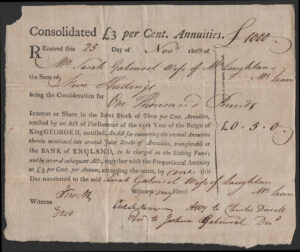 Consolidated £3 per Cent. Annuities. £ 1000
Received this 25 Day of Novr 1808 of
Mrs Sarah Gabourel Wife of Laughlan
McLean
the Sum of Five Shillings
being the Consideration for One Thousand Pounds
Interest or Share in the Joint Stock of Three per Cent. Annuities,
erected by an Act of Parliament of the 25th Year of the Reign of
King GEORGE II. entitled, An Act for converting the several Annuities
therein mentioned into several Joint Stocks of Annuities, transferable at
the BANK OF ENGLAND, to be charged on the Sinking Fund;
and by several subsequent Acts; together with the Proportional Annuity
at £3 per Cent. per Annum, attending the same, by me this
Day transferred to the said Sarah Gabourel Wife of Laughlan
McLean
£ 0 . 5 . 0
Witness my Hand
Witness
Atty to Charles
to Joshua Gabourel Decd